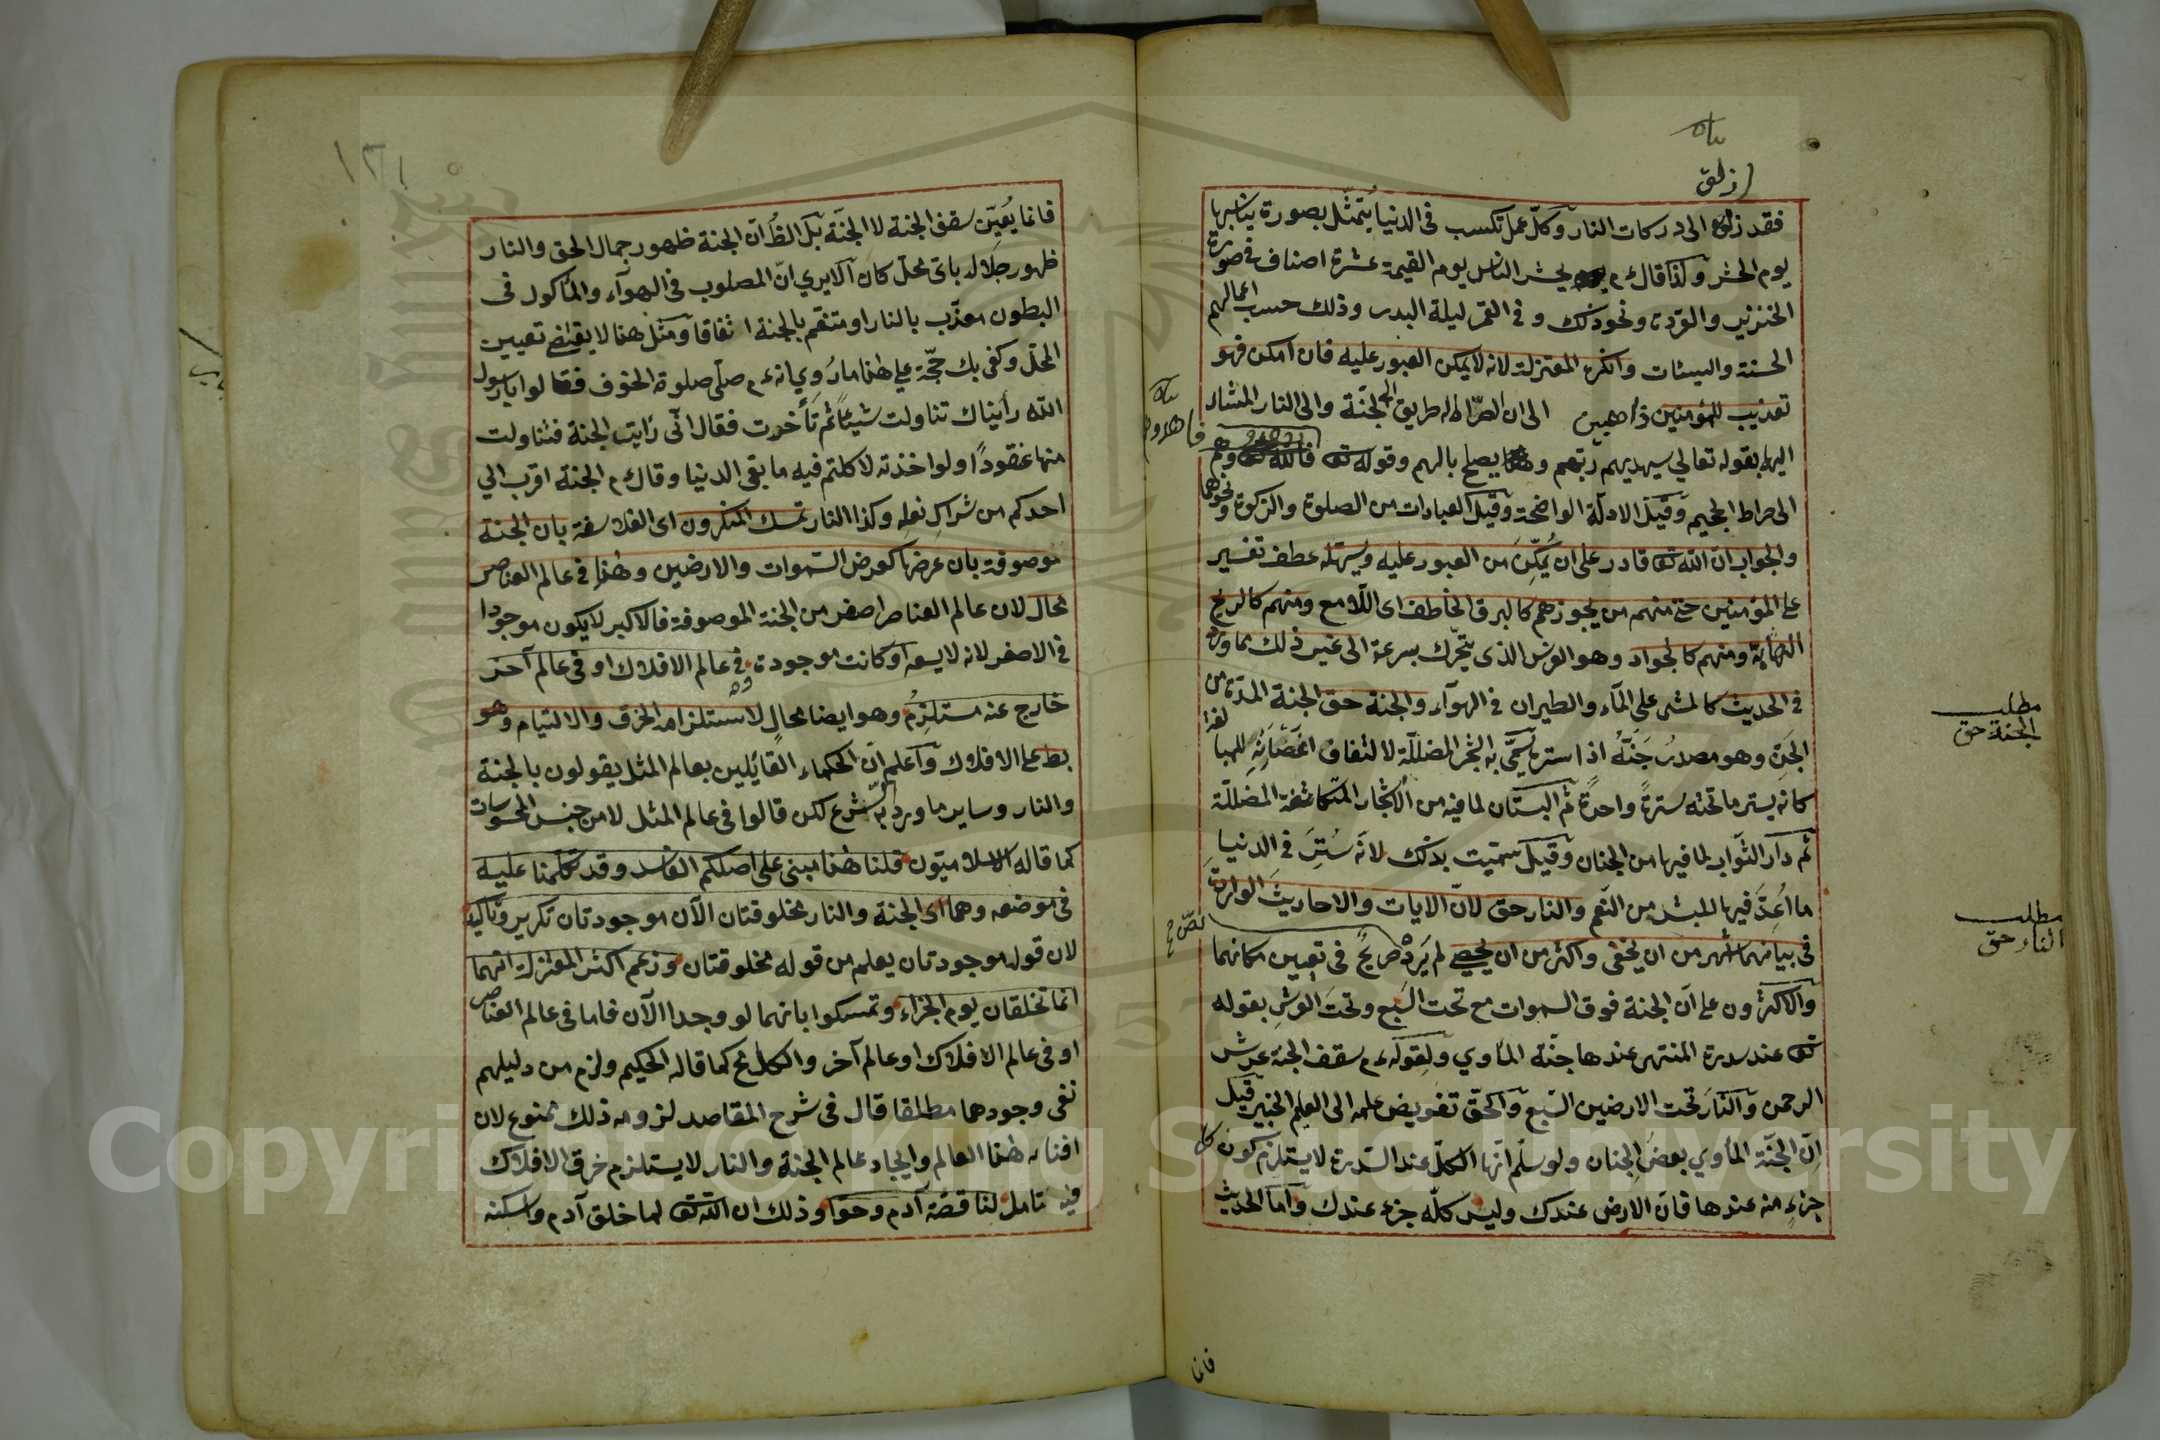 ازلق
فقد زلق الى دركات النار وكل عمل تكسب فى الدنيا يتمثل بصورة يناسبها
يوم الحشر وكذا قال ءم يحشر الناس يوم القيمة عشرة اصناف فى صورة
الخنزير والقردة ونحو ذلك وفى القمر ليلة البدر وذلك حسب اعمالهم
الحسنة والسيئات وانكره المعتزلة لانه لا يمكن العبور عليه فان امكن فهو
تعذيب للمؤمنين ذاهبين الى ان الصراط طريق الى الجنة والى النار المشار
اليها بقوله تعالى سيهديهم ربهم ويصلح بالهم وقوله تعالى فاهدوهم
الى صراط الجحيم وقيل الادلة الواضحة وقيل العبادات من الصلوة والزكوة ونحوهما
والجواب ان الله تعالى قادر على ان يمكن من العبور عليه ويسهله عطف تفسير
على المؤمنين حتى منهم من يجوزهم كالبرق الخاطف اى اللامع ومنهم كالريح
الهابة ومنهم كالجواد وهو الفرس الذى يتحرك بسرعة الى غير ذلك مما ورد
فى الحديث كالمشى على الماء والطيران فى الهواء والجنة حق الجنة المرة من
الجن وهو مصدر جنه اذا ستره يسمى به الشجر المظللة لالتفاف اغصانه للمبالغة
كانه يستر ما تحته سترة واحدة ثم البستان لما فيه من الاشجار المتكاثفة المظللة
ثم دار الثواب لما فيها من الجنان وقيل سميت بذلك لانه ستر فى الدنيا
ما اعد فيها للبشر من النعم والنار حق لان الايات والاحاديث الواردة
فى بيانهما اشهر من ان يخفى واكثر من ان يحصى لم يرد نص صريح فى تعيين مكانهما
والاكثرون على ان الجنة فوق السموات السبع وتحت العرش بقوله
تعالى عند سدرة المنتهى عندها جنة المأوى ولقوله ءم سقف الجنة عرش
الرحمن والنار تحت الارضين السبع والحق تفويض علمه الى العليم الخبير قيل
ان الجنة المأوى بعض الجنان ولو سلم انها الكل عند السدرة لا يستلزم كون كل
جزء منه عندها فان الارض عندك وليس كله جزء عندك واما الحديث
مطلب
الجنة حق
مطلب
النار حق
فانما
١٢١
فانما يعين سقف الجنة لا الجنة بل الظ ان الجنة ظهور جمال الحق والنار
ظهور جلاله باى محل كان الا يرى ان المصلوب فى الهواء والمأكول فى
البطون معذب بالنار او متنعم بالجنة اتفاقا ومثل هذا لا يقتضى تعيين
المحل وكفى بك حجة على هذا ما روى انه ءم صلى صلوة الخوف فقالوا يا رسول
الله رأيناك تناولت شيئا ثم تأخرت فقال انى رايت الجنة فتناولت
منها عنقودا ولو اخذته لاكلتم فيه ما بقى الدنيا وقال ءم الجنة اقرب الى
احدكم من شراك نعله وكذا النار تمسك المنكرون اى الفلاسفة بان الجنة
موصوفة بان عرضها كعرض السموات والارضين وهذا فى عالم العناصر
محال لان عالم العناصر اصغر من الجنة الموصوفة فالاكبر لا يكون موجودا
فى الاصغر لانه لا يسعه او كانت موجودة فى عالم الافلاك او فى عالم آخر
خارج عنه مستلزم وهو ايضا محال لاستلزامه الخرق والالتيام وهو
بط على الافلاك واعلم ان الحكماء القائلين بعالم المثل يقولون بالجنة
والنار وساير ما ورد به الشرع لكن قالوا فى عالم المثل لا من جنس المحسوسات
كما قاله الاسلاميون قلنا هذا مبنى على اصلكم الفاسد وقد تكلمنا عليه
فى موضعه وهما اى الجنة والنار مخلوقتان الآن موجودتان تكرير وتاكيد
لان قوله موجودتان يعلم من قوله مخلوقتان وزعم اكثر المعتزلة انهما
انما تخلقان يوم الجزاء وتمسكوا بانهما لو وجدا الآن فاما فى عالم العناصر
او فى عالم الافلاك او عالم آخر والكل مح كما قاله الحكيم ولزم من دليلهم
نفى وجودهما مطلقا قال فى شرح المقاصد لزومه ذلك ممنوع لان
افناء هذا العالم وايجاد عالم الجنة والنار لا يستلزم خرق الافلاك
فيه تامل لنا قصة آدم وحوا وذلك ان الله تعالى لما خلق آدم واسكنه
Copyright © King Saud University